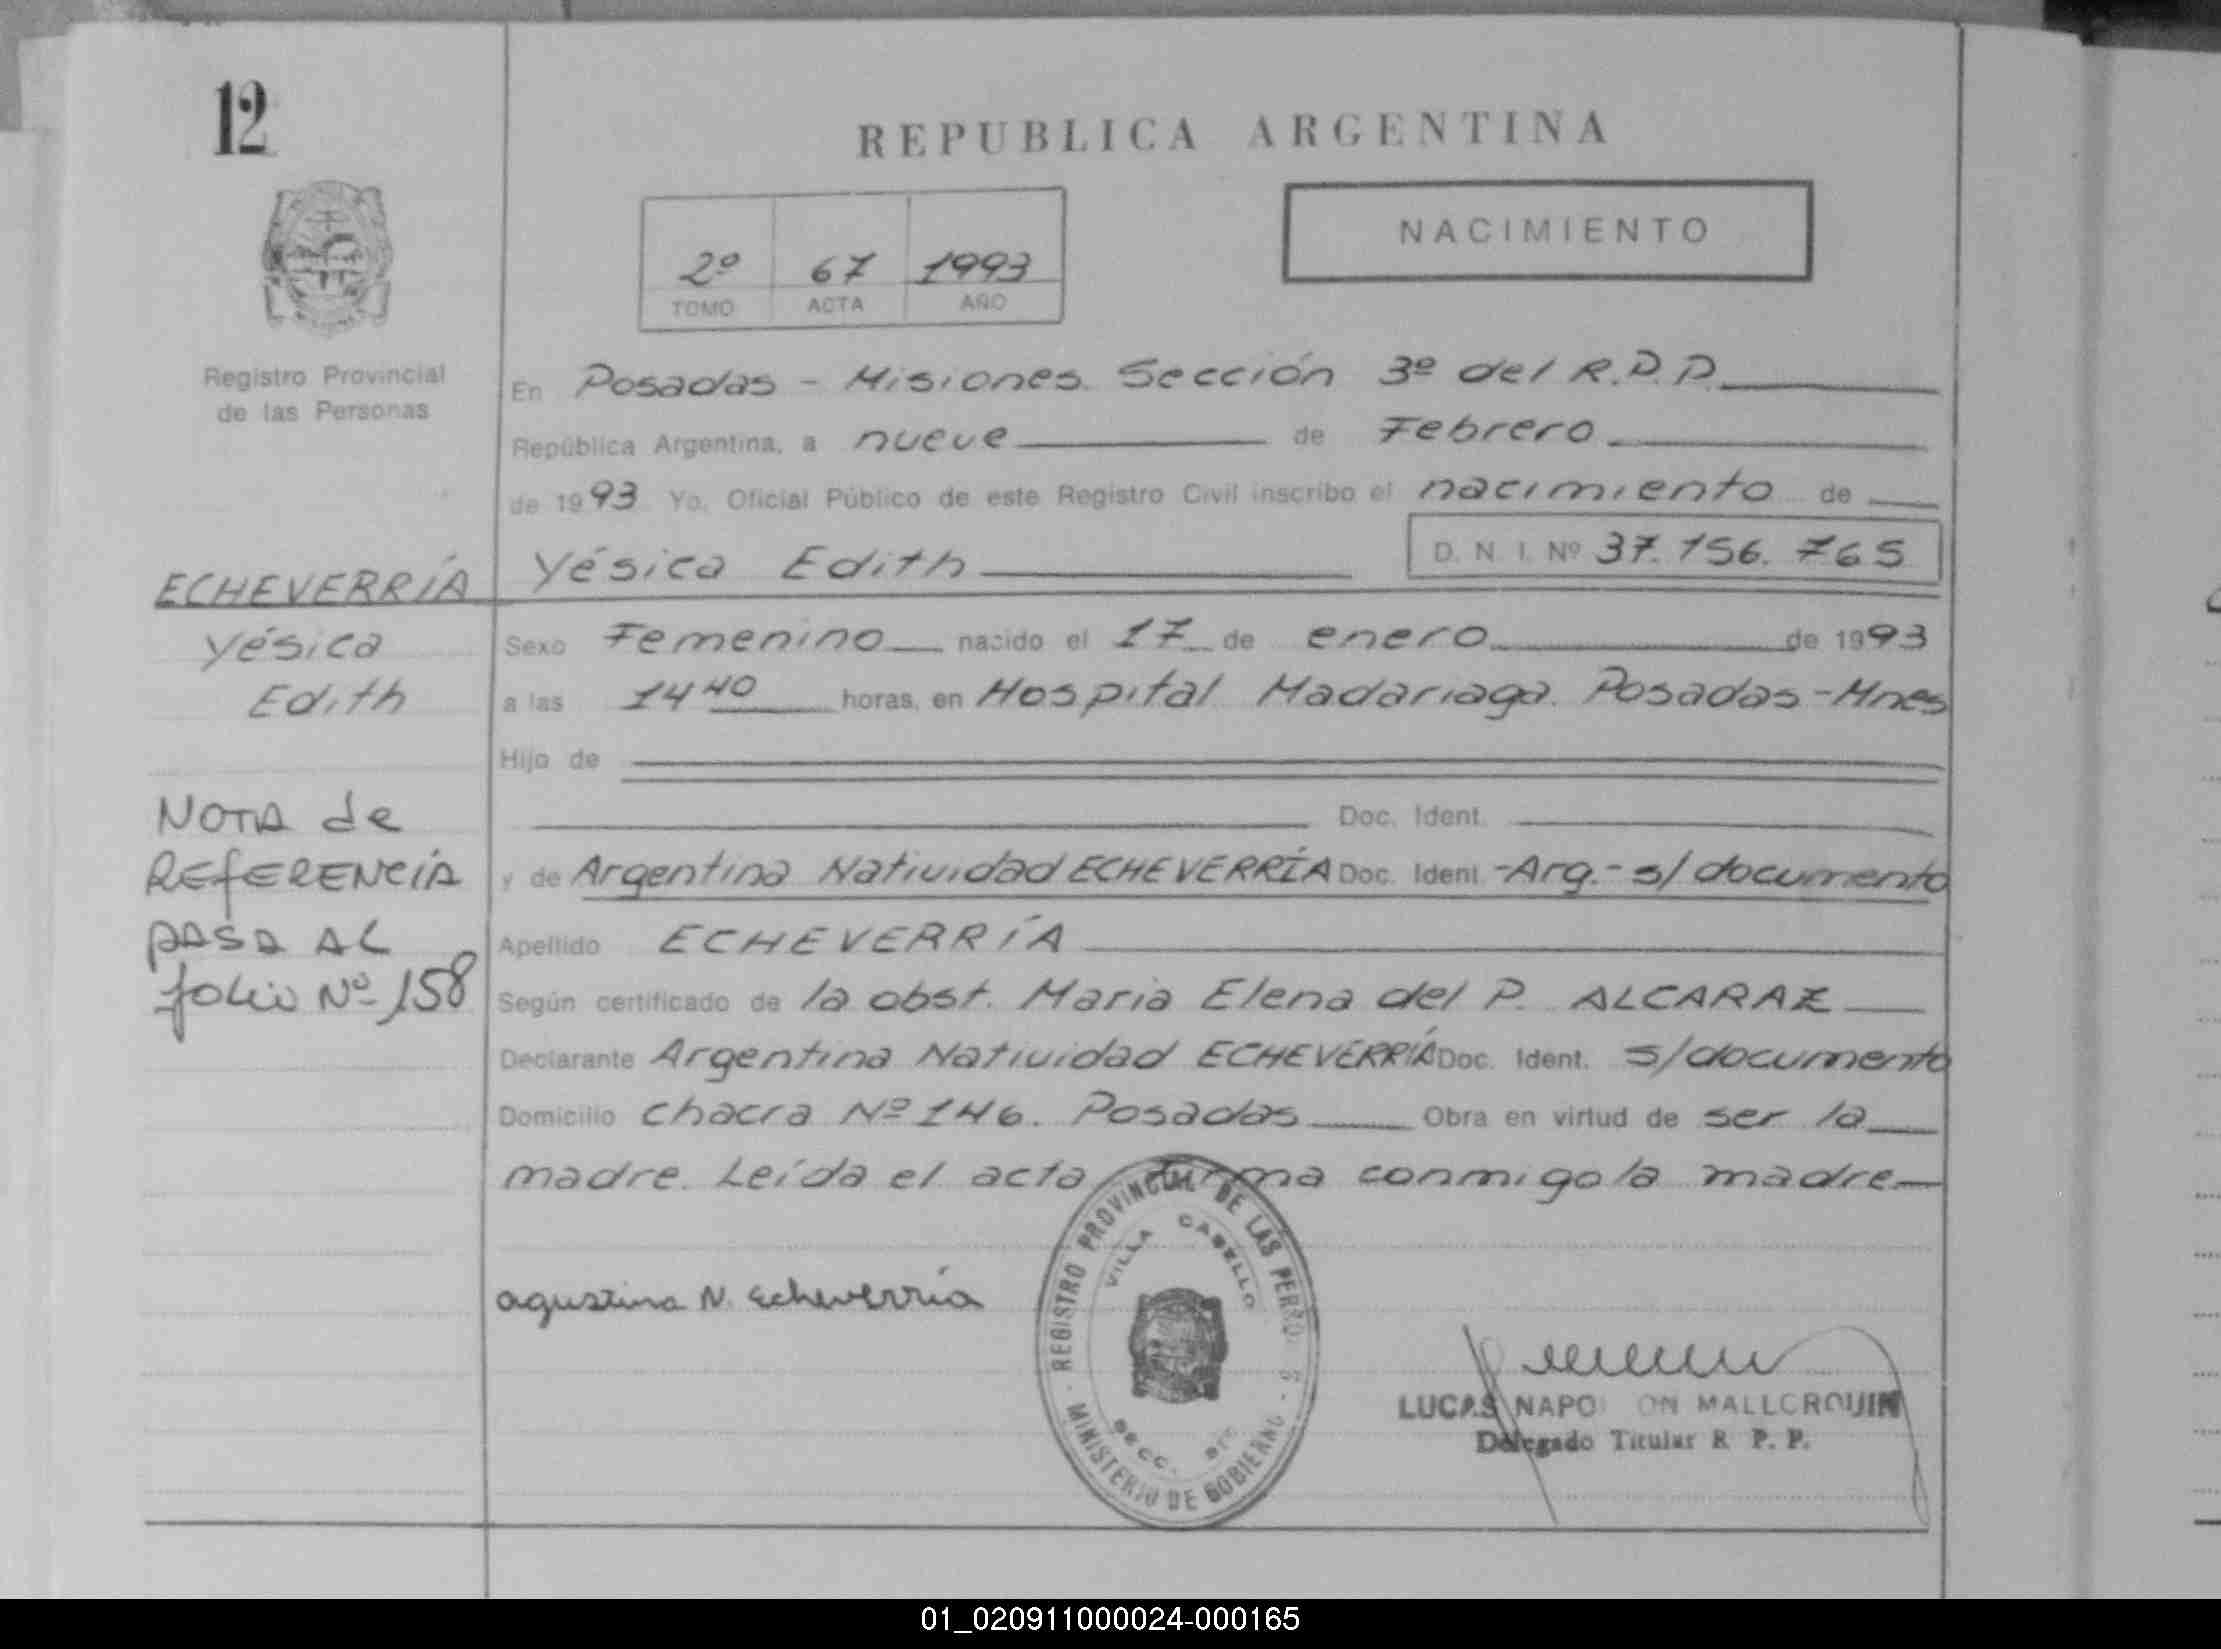 12
REPUBLICA ARGENTINA
NACIMIENTO
2º 67 1993
TOMO ACTA AÑO
Registro Provincial
de las Personas
En Posadas - Misiones. Sección 3º del R.P.P.
República Argentina, a nueve de Febrero
de 1993 Yo, Oficial Público de este Registro Civil inscribo el nacimiento de
Yésica Edith D. N. I. Nº 37.156.765
ECHEVERRÍA
Yésica
Edith
Sexo Femenino nacido el 17 de enero de 1993
a las 14 40 horas, en Hospital Madariaga. Posadas - Mnes
Hijo de
Doc. Ident.
NOTA de
REFERENCIA
PASA AL
folio Nº 158
y de Argentina Natividad ECHEVERRÍA Doc. Ident. -Arg.- s/documento
Apellido ECHEVERRÍA
Según certificado de la obst. Maria Elena del P. ALCARAZ
Declarante Argentina Natividad ECHEVERRÍA Doc. Ident. s/documento
Domicilio chacra Nº 146. Posadas Obra en virtud de ser la
madre. Leída el acta firma conmigo la madre
agustina N. Echeverría
REGISTRO PROVINCIAL DE LAS PERSO S
VILLA CABELLO
SECC. 3ra
MINISTERIO DE GOBIERNO
LUCAS NAPO ON MALLORQUIN
Delegado Titular R. P. P.
01_020911000024-000165